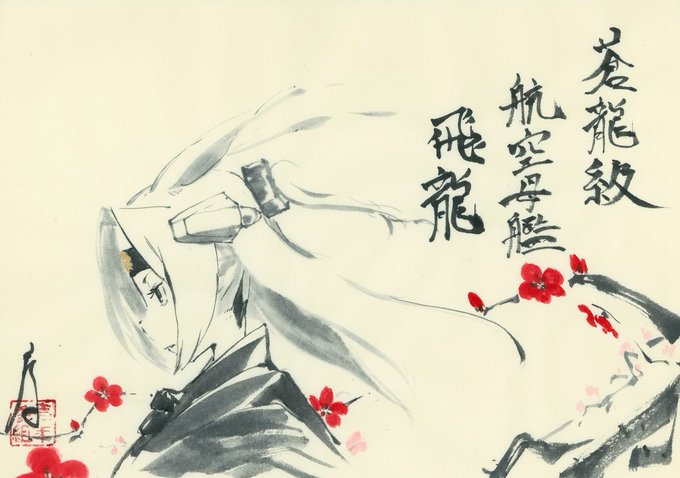 蒼龍級
航空母艦
飛龍